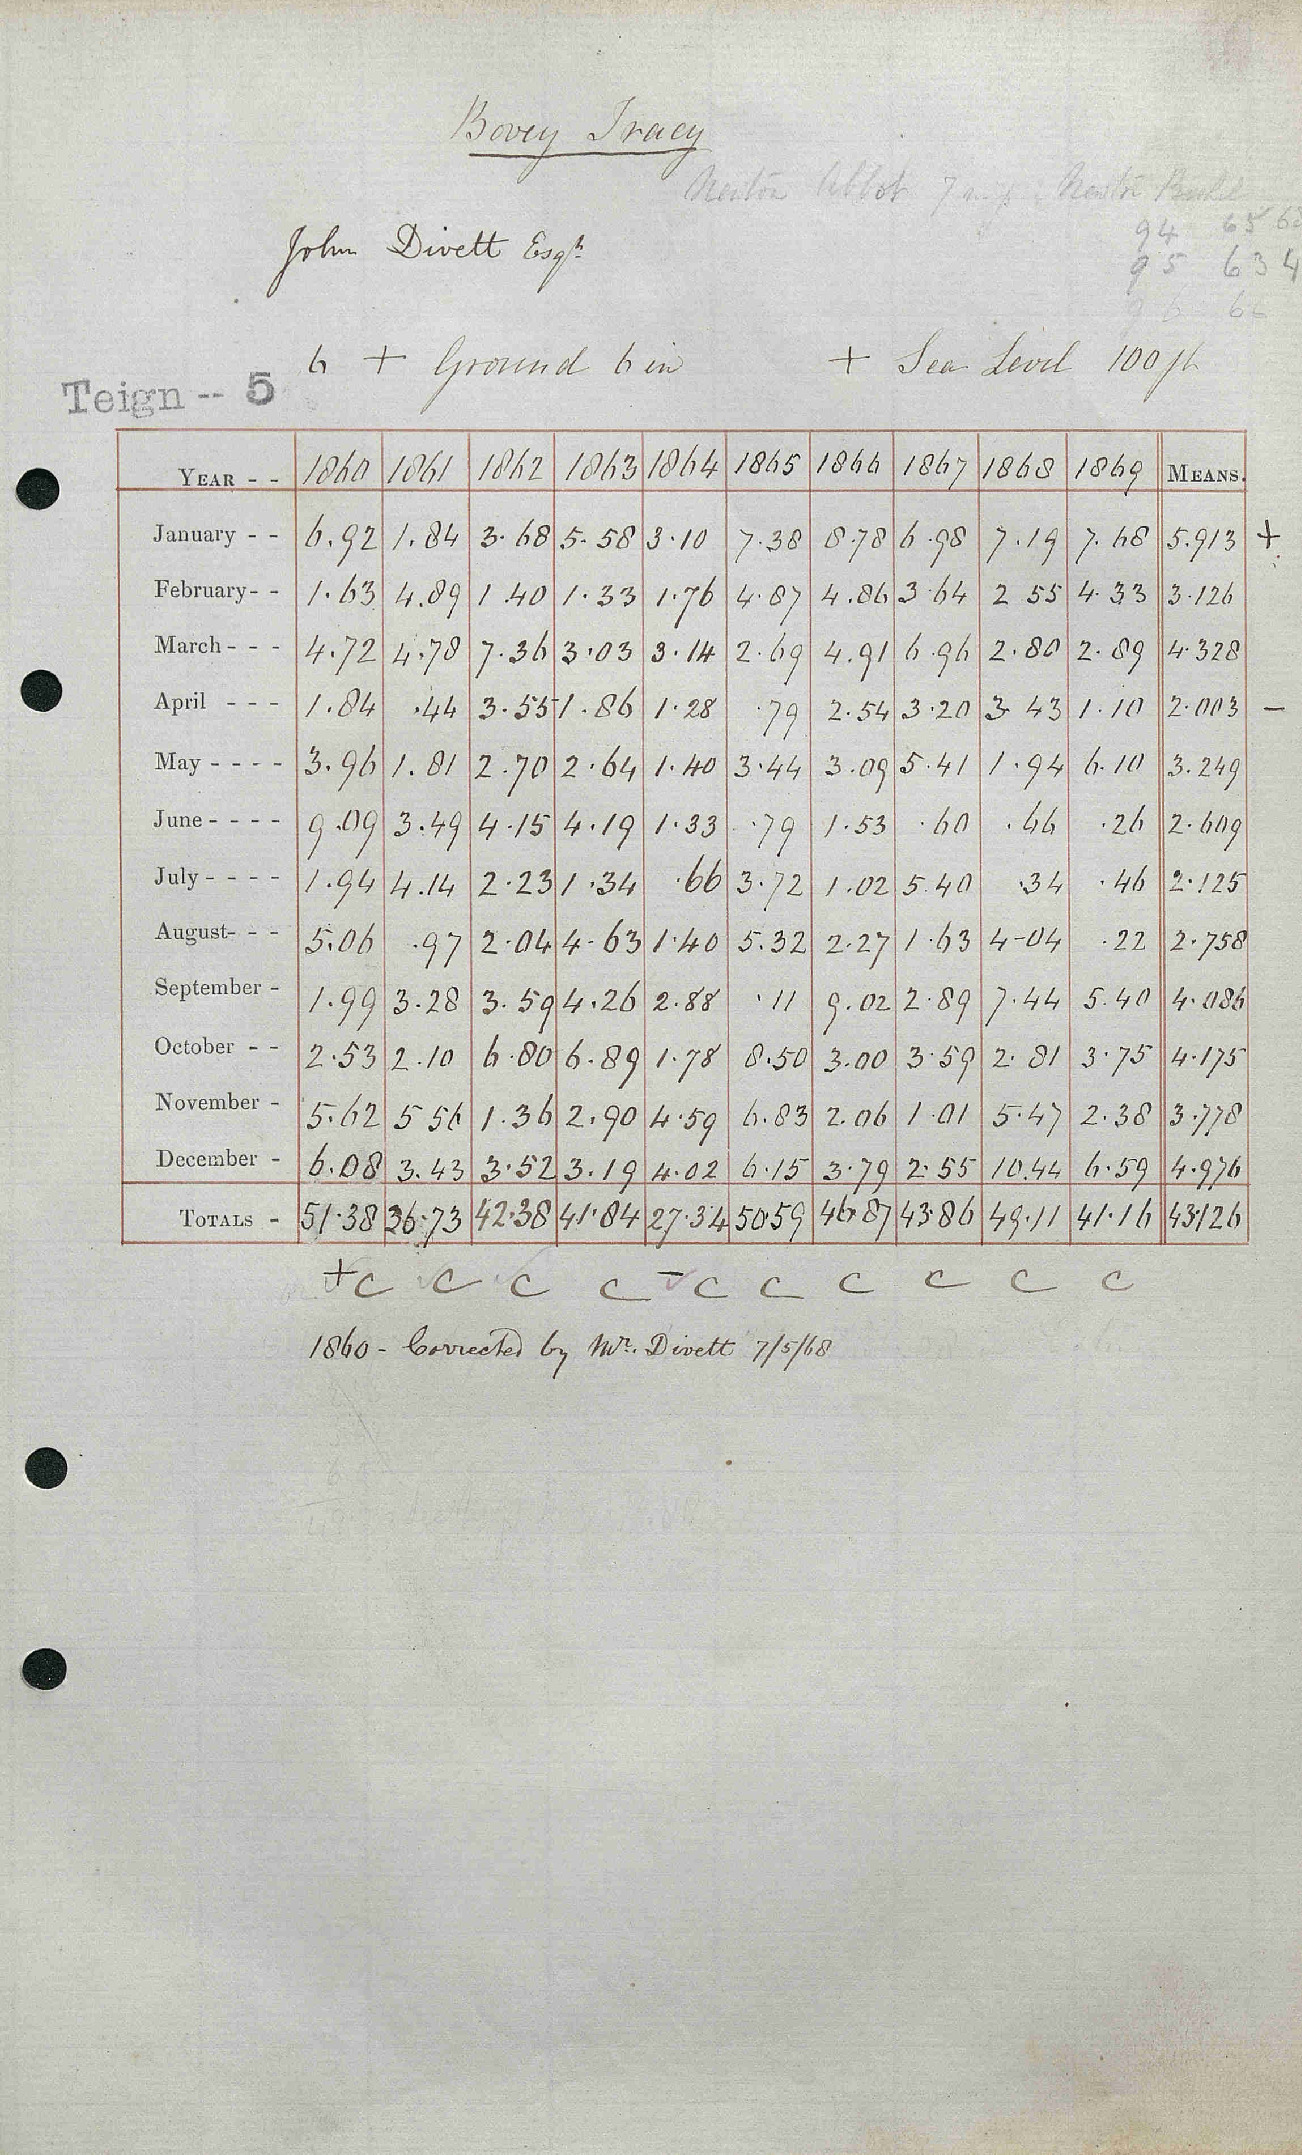 Bovey Tracy
Newton Abbot 7
94 65 68
John Divett Esqr
95 63 4
96 66
6 + Ground 6 in + Sea Level 100 ft
Teign -- 5
YEAR - - 1860 1861 1862 1863 1864 1865 1866 1867 1868 1869 MEANS.
January - - 6.92 1.84 3.68 5.58 3.10 7.38 8.78 6.98 7.19 7.68 5.913 +
February - - 1.63 4.89 1.40 1.33 1.76 4.87 4.86 3.64 2 55 4.33 3.126
March - - - 4.72 4.78 7.36 3.03 3.14 2.69 4.91 6.96 2.80 2.89 4.328
April - - - 1.84 .44 3.55 1.86 1.28 .79 2.54 3.20 3.43 1.10 2.003 –
May - - - - 3.96 1.81 2.70 2.64 1.40 3.44 3.09 5.41 1.94 6.10 3.249
June - - - - 9.09 3.49 4.15 4.19 1.33 .79 1.53 .60 .66 .26 2.609
July - - - - 1.94 4.14 2.23 1.34 .66 3.72 1.02 5.40 .34 .46 2.125
August - - - 5.06 .97 2.04 4.63 1.40 5.32 2.27 1.63 4-04 .22 2.758
September - 1.99 3.28 3.59 4.26 2.88 .11 9.02 2.89 7.44 5.40 4.086
October - - 2.53 2.10 6.80 6.89 1.78 8.50 3.00 3.59 2.81 3.75 4.175
November - 5.62 5 56 1.36 2.90 4.59 6.83 2.06 1.01 5.47 2.38 3.778
December - 6.08 3.43 3.52 3.19 4.02 6.15 3.79 2.55 10.44 6.59 4.976
TOTALS - 51.38 36.73 42.38 41.84 27.34 50.59 46.87 43.86 49.11 41.16 43.126
+ c c c c – c c c c c c
1860 - Corrected by Mr. Divett 7/5/68